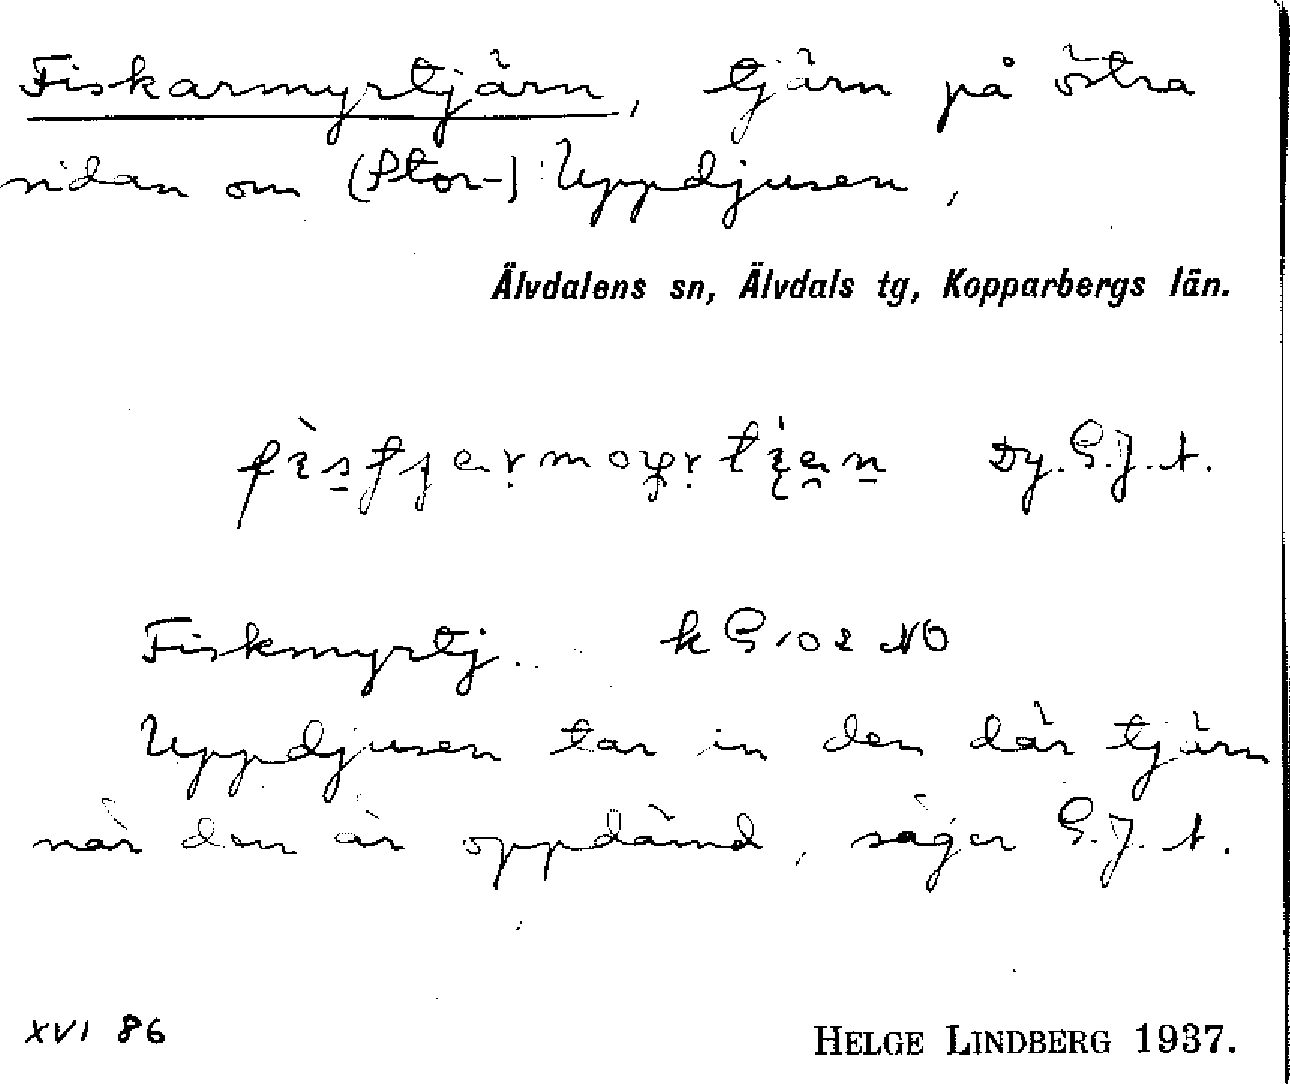 Fiskarmyrtjärn, tjärn på östra
sidan om (Stor-) Uppdjusen,
Älvdalens sn, Älvdals tg, Kopparbergs län.
Dy. G.J. A.
Fiskmyrtj. k G 102 NO
Uppdjusen tar in den där tjärn
när den är oppdämd, säger G.J. A.
XVI 86
HELGE LINDBERG 1937.